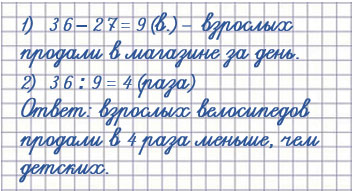 1) 36 – 27 = 9 (в.) – взрослых
продали в магазине за день.
2) 36 : 9 = 4 (раза)
Ответ: взрослых велосипедов
продали в 4 раза меньше, чем
детских.